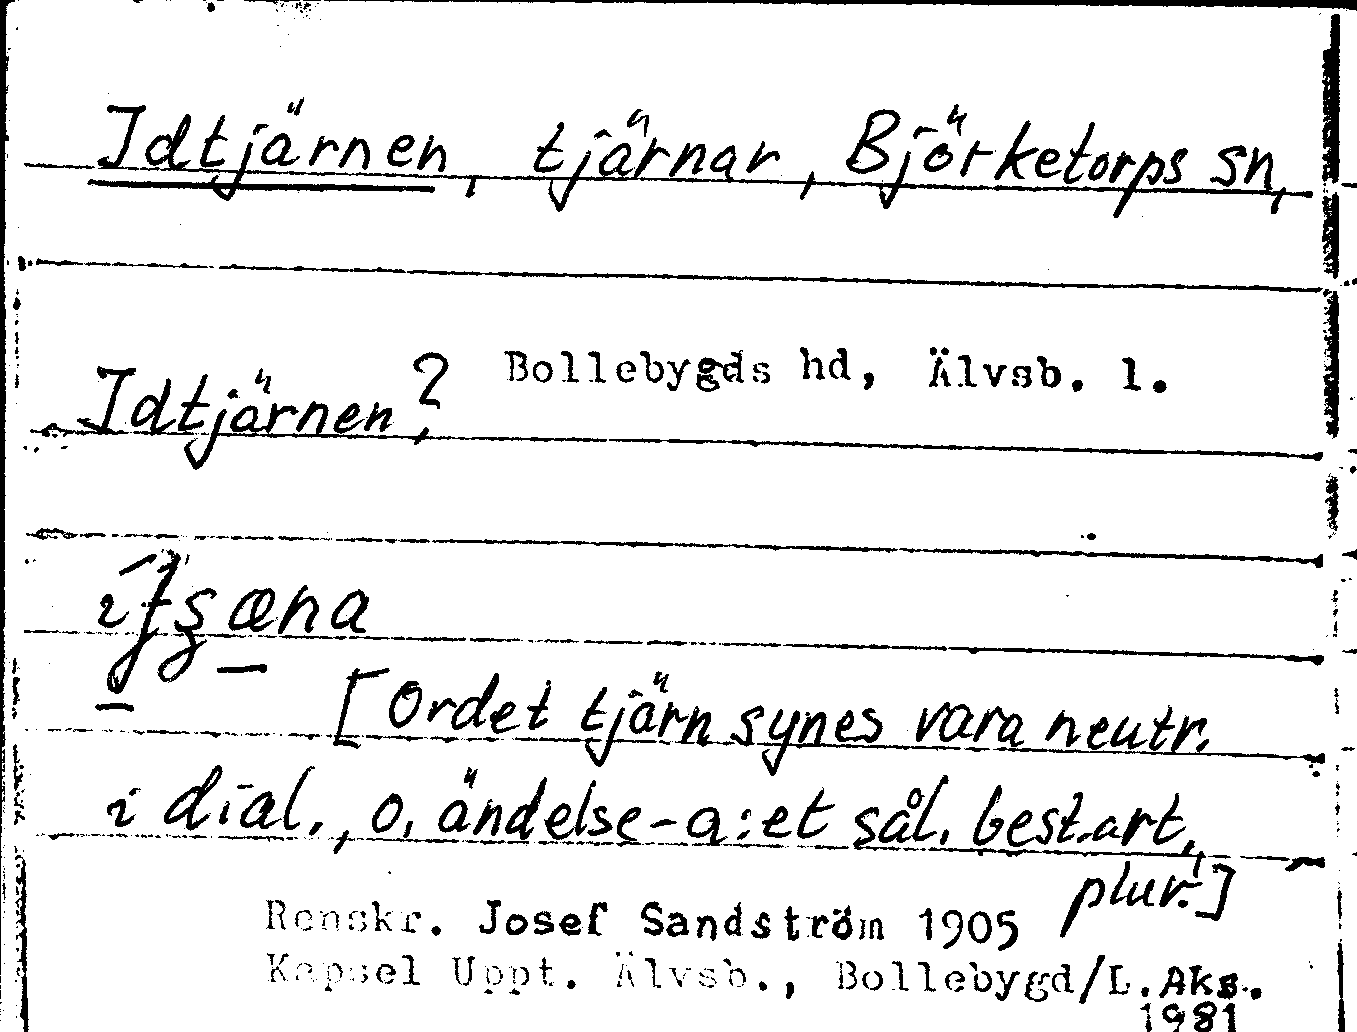 Idtjärnen, tjärnar, Björketorps sn,
Bollebygds hd, Älvsb. l.
Idtjärnen?
[Ordet tjärn synes vara neutr.
i dial., o. ändelse-a:et sål. best.art.,
plur.]
Renskr. Josef Sandström 1905
Kapsel Uppt. Älvsb., Bollebygd/L.Aks.
1981